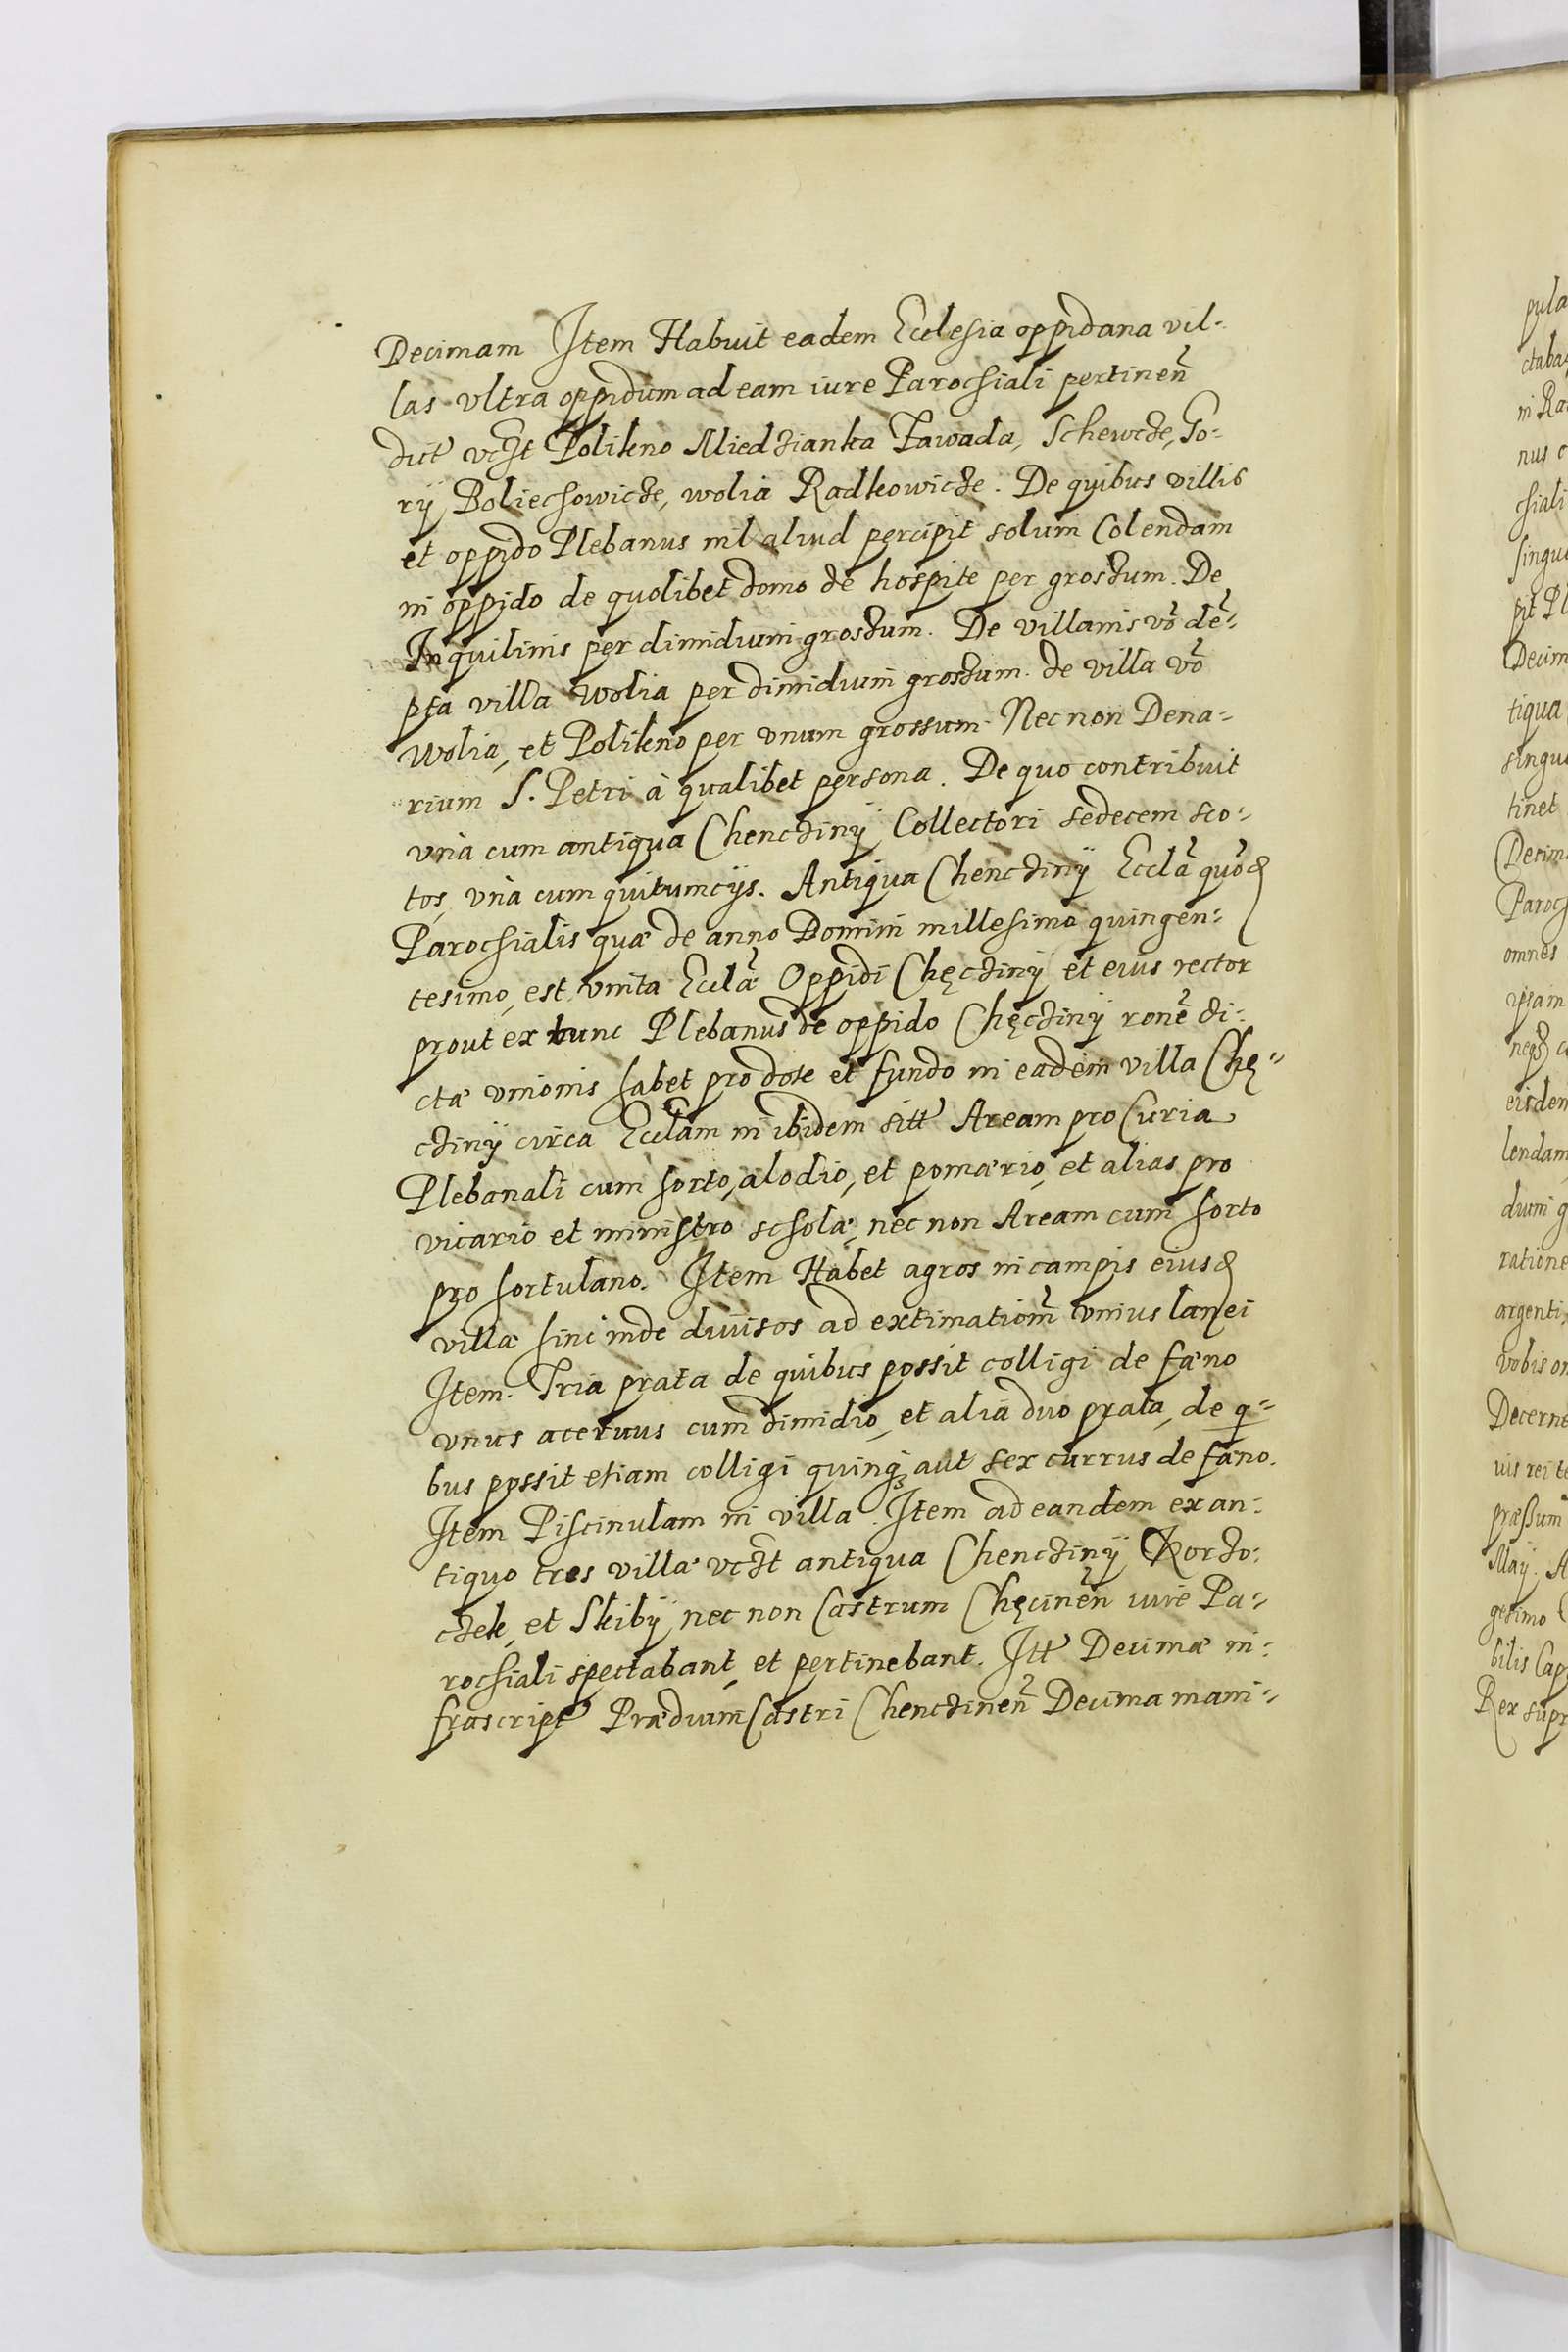 Decimam Item Habuit eadem Ecclesia oppidana vil-
las vltra oppidum ad eam iure Parochiali pertinen̄
dict vcȝt Polikno Miedzianka Zawada, Schewcze, Go-
rÿ Boliechowicze, wolia Radkowicze. De quibus villis
et oppido Plebanus nil aliud percipit solum Colendam
in oppido de quolibet domo de hospite per grossum. De
Inquilinis per dimidium grossum. De villanis vō dē-
pta villa Wolia per dimidium grossum. de villa vō
Wolia, et Polikno per vnum grossum. Nec non Dena-
rium S. Petri à qualibet persona. De quo contribuit
vnà cum antiqua Chenczinÿ Collectori sedecem sco-
tos, vnà cum quitumcÿs. Antiqua Chenczinÿ Ecclā quōd
Parochialis quæ de anno Domini millesimo quingen-
tesimo, est vnita Ecclæ Oppidi Chęczinÿ et eius rector
prout ex tunc Plebanus de oppido Chęczinÿ ronē di-
ctæ vnionis habet pro dote et fundo in eadem villa Chę-
czinÿ circa Ecclam in ibidem sitt Aream pro Curia
Plebanali cum horto, alodio, et pomœrio, et alias pro
vicario et ministro scholæ, nec non Aream cum horto
pro hortulano. Item Habet agros in campis eiusd
villæ hinc inde diuisos ad extimationē vnius lanei
Item. Tria prata de quibus possit colligi de fæno
vnus aceruus cum dimidio, et alia duo prata, de q-
bus possit etiam colligi quinqȝ aut sex currus de fæno.
Item Piscinulam in villa. Item ad eandem ex an-
tiquo tres villæ vcȝt antiqua Chenczinÿ Korzo-
czek, et Skibÿ nec non Castrum Chęcinen̄ iure Pa-
rochiali spectabant, et pertinebant. Itt Decimæ in-
frascript Prædium Castri Chenczinen̄ Decima mani-